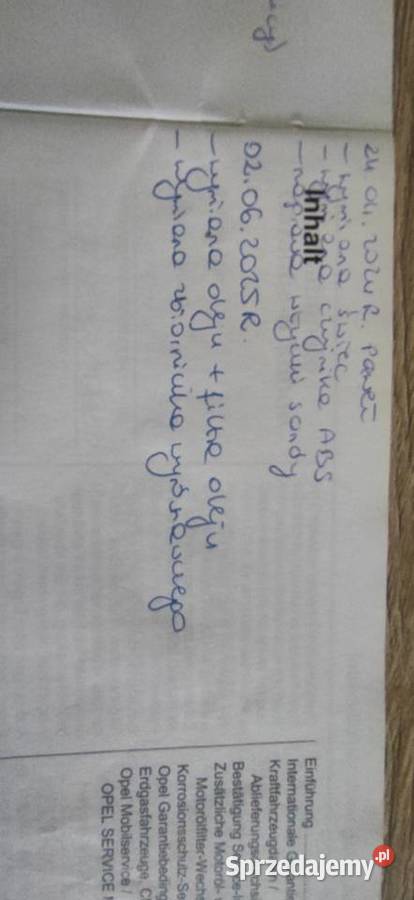 24.01.2024R. Paweł
- wymiana świec
- wymiana czujnika ABS
Inhalt
- naprawa wtyczki sondy
02.06.2025R.
- wymiana oleju + filtr oleju
- wymiana zbiorniczka wyrównawczego
Einführung
Internationale
Kraftfahrzeugd
Ablieferungs
Bestätigung
Zusätzliche Motoröl-
Motorölfilter-Wechs
Korrosionsschutz-Se
Opel Garantiebeding
Erdgasfahrzeuge, C
Opel Mobilservice /
OPEL SERVICE
Sprzedajemy.pl